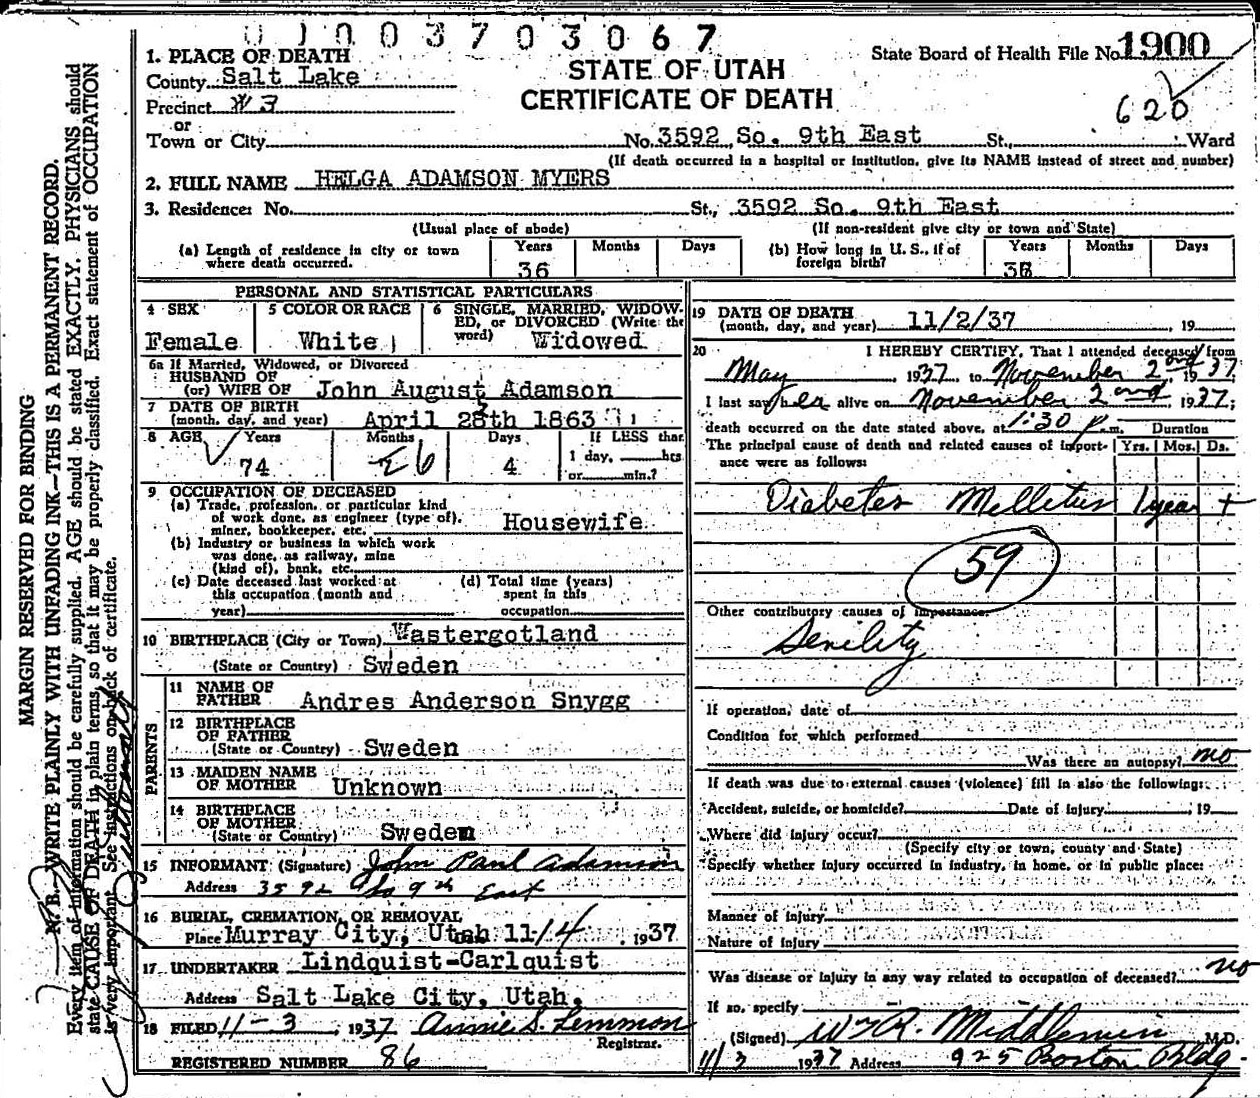 0 1 0 0 3 7 0 3 0 6 7
1. PLACE OF DEATH
County Salt Lake
Precinct #3
or
Town or City
STATE OF UTAH
CERTIFICATE OF DEATH
State Board of Health File No. 1900
620
No. 3592 So. 9th East St., Ward
(If death occurred in a hospital or institution, give its NAME instead of street and number)
2. FULL NAME HELGA ADAMSON MYERS
3. Residence: No. St., 3592 So. 9th East
(Usual place of abode) (If non-resident give city or town and State)
(a) Length of residence in city or town where death occurred. Years 36 Months Days
(b) How long in U. S., if of foreign birth? Years 36 Months Days
PERSONAL AND STATISTICAL PARTICULARS
4 SEX Female
5 COLOR OR RACE White
6 SINGLE, MARRIED, WIDOWED, or DIVORCED (Write the word) Widowed
6a If Married, Widowed, or Divorced
HUSBAND OF
(or) WIFE OF John August Adamson
7 DATE OF BIRTH
(month, day, and year) April 28th 1863
8 AGE Years 74 Months 6 Days 4
If LESS than 1 day, hrs. or min.?
9 OCCUPATION OF DECEASED
(a) Trade, profession, or particular kind
of work done, as engineer (type of),
miner, bookkeeper, etc. Housewife
(b) Industry or business in which work
was done, as railway, mine
(kind of), bank, etc.
(c) Date deceased last worked at
this occupation (month and
year)
(d) Total time (years)
spent in this
occupation
10 BIRTHPLACE (City or Town) Wastergotland
(State or Country) Sweden
PARENTS
11 NAME OF
FATHER Andres Anderson Snygg
12 BIRTHPLACE
OF FATHER
(State or Country) Sweden
13 MAIDEN NAME
OF MOTHER Unknown
14 BIRTHPLACE
OF MOTHER
(State or Country) Sweden
15 INFORMANT (Signature) John Paul Adamson
Address 3592 So 9th East
16 BURIAL, CREMATION, OR REMOVAL
Place Murray City, Utah 11/4, 1937
17 UNDERTAKER Lindquist-Carlquist
Address Salt Lake City, Utah.
18 FILED 11-3, 1937 Annie S. Lemmon
Registrar.
REGISTERED NUMBER 86
19 DATE OF DEATH
(month, day, and year) 11/2/37, 19
20 I HEREBY CERTIFY, That I attended deceased from
May 1937 to November 2nd, 1937
I last saw her alive on November 2nd, 1937;
death occurred on the date stated above, at 1:30 p.m.
The principal cause of death and related causes of importance were as follows:
Duration
Yrs. Mos. Ds.
Diabetes Mellitus 1 year +
59
Other contributory causes of importance.
Senility
If operation, date of
Condition for which performed
Was there an autopsy? no
If death was due to external causes (violence) fill in also the following:
Accident, suicide, or homicide? Date of injury, 19
Where did injury occur?
(Specify city or town, county and State)
Specify whether injury occurred in industry, in home, or in public place:
Manner of injury
Nature of injury
Was disease or injury in any way related to occupation of deceased? no
If so, specify
(Signed) Wm R. Middlemiss M.D.
11/3 1937 Address 925 Boston Bldg.
MARGIN RESERVED FOR BINDING
N. B.—WRITE PLAINLY WITH UNFADING INK—THIS IS A PERMANENT RECORD.
Every item of information should be carefully supplied. AGE should be stated EXACTLY. PHYSICIANS should
state CAUSE OF DEATH in plain terms, so that it may be properly classified. Exact statement of OCCUPATION
is very important. See instructions on back of certificate.